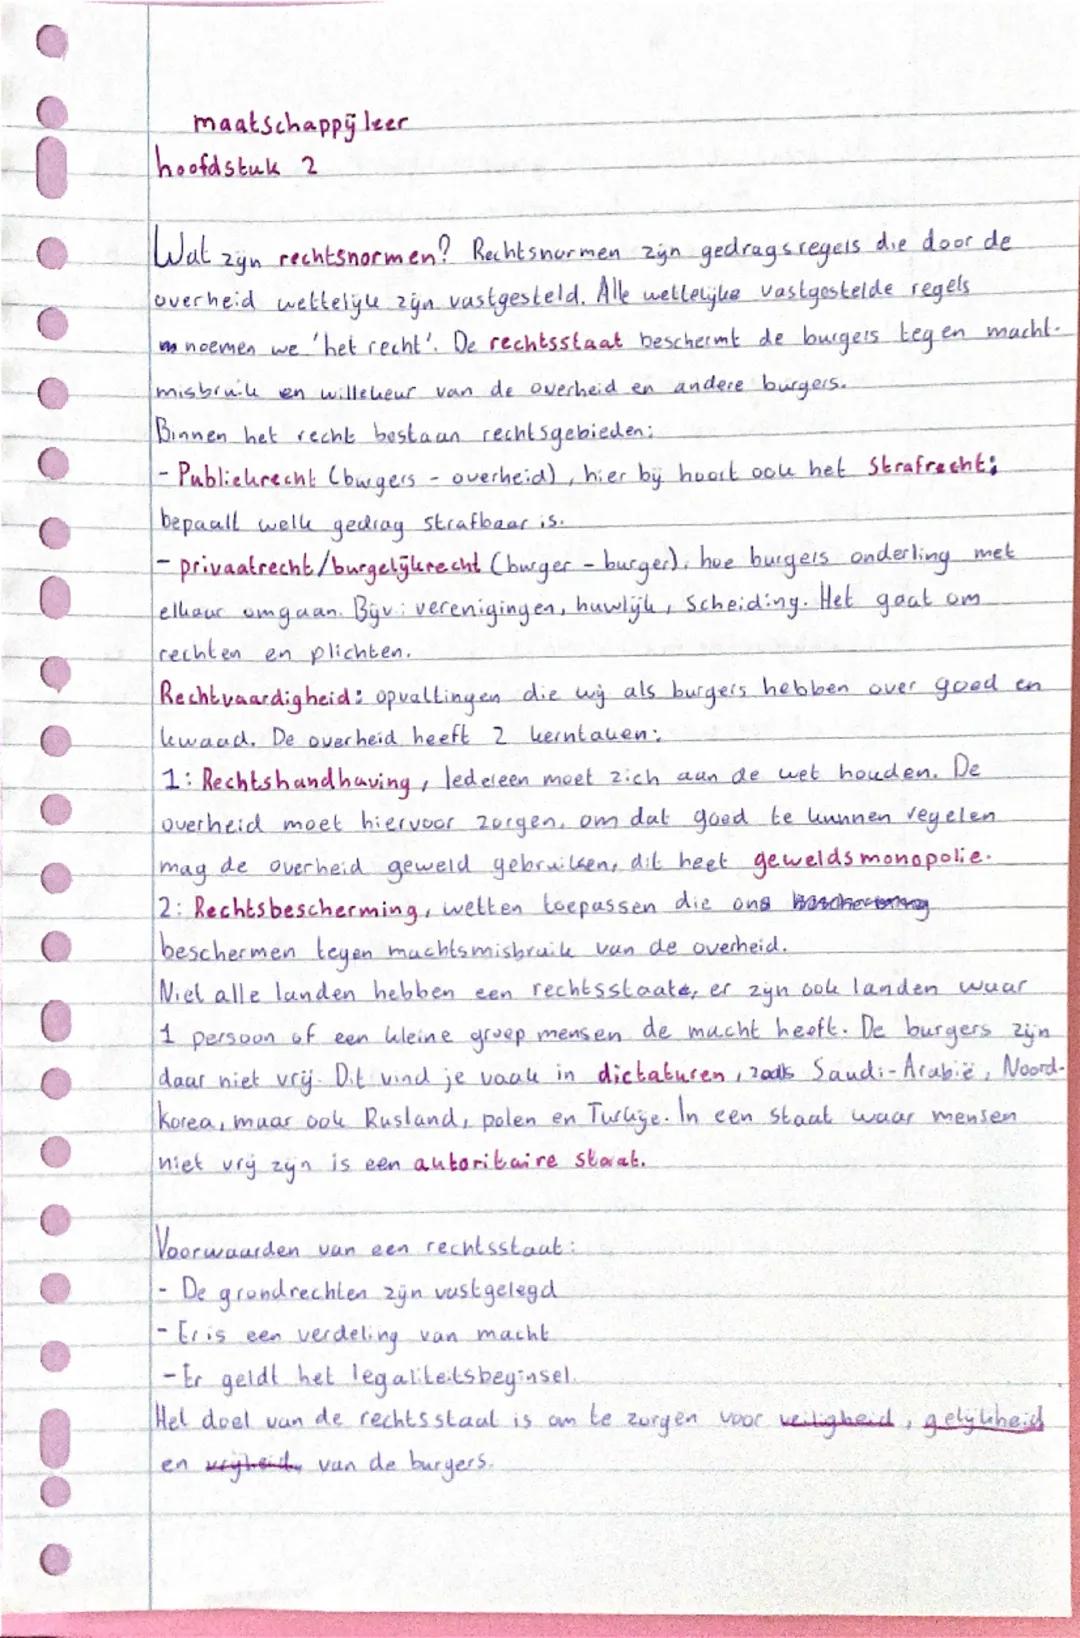 maatschappij leer
hoofdstuk 2
Wat zijn rechtsnormen? Rechtsnormen zijn gedragsregels die door de
overheid wettelijk zijn vastgesteld. Alle wettelijke vastgestelde regels
noemen we 'het recht'. De rechtsstaat beschermt de burgers tegen macht-
misbruik en willekeur van de overheid en andere burgers.
Binnen het recht bestaan rechtsgebieden:
- Publiekrecht (burgers - overheid), hier bij hoort ook het Strafrecht:
bepaalt welk gedrag strafbaar is.
- privaatrecht/burgelijkrecht (burger - burger), hoe burgers onderling met
elkaar omgaan. Bijv: verenigingen, huwlijk, scheiding. Het gaat om
rechten en plichten.
Rechtvaardigheid: opvattingen die wij als burgers hebben over goed en
kwaad. De overheid heeft 2 kerntaken:
1: Rechtshandhaving, Iedereen moet zich aan de wet houden. De
overheid moet hiervoor zorgen, om dat goed te kunnen regelen
mag de overheid geweld gebruiken, dit heet geweldsmonopolie.
2: Rechtsbescherming, wetten toepassen die ons
beschermen tegen machtsmisbruik van de overheid.
Niet alle landen hebben een rechtsstaat, er zijn ook landen waar
1 persoon of een kleine groep mensen de macht heeft. De burgers zijn
daar niet vrij. Dit vind je vaak in dictaturen, zoals Saudi-Arabië, Noord-
Korea, maar ook Rusland, polen en Turkije. In een staat waar mensen
niet vrij zijn is een autoritaire staat.
Voorwaarden van een rechtsstaat:
- De grondrechten zijn vastgelegd
- Er is een verdeling van macht
- Er geldt het legaliteitsbeginsel.
Het doel van de rechtsstaat is om te zorgen voor veiligheid, gelijkheid
en vrijheid, van de burgers.